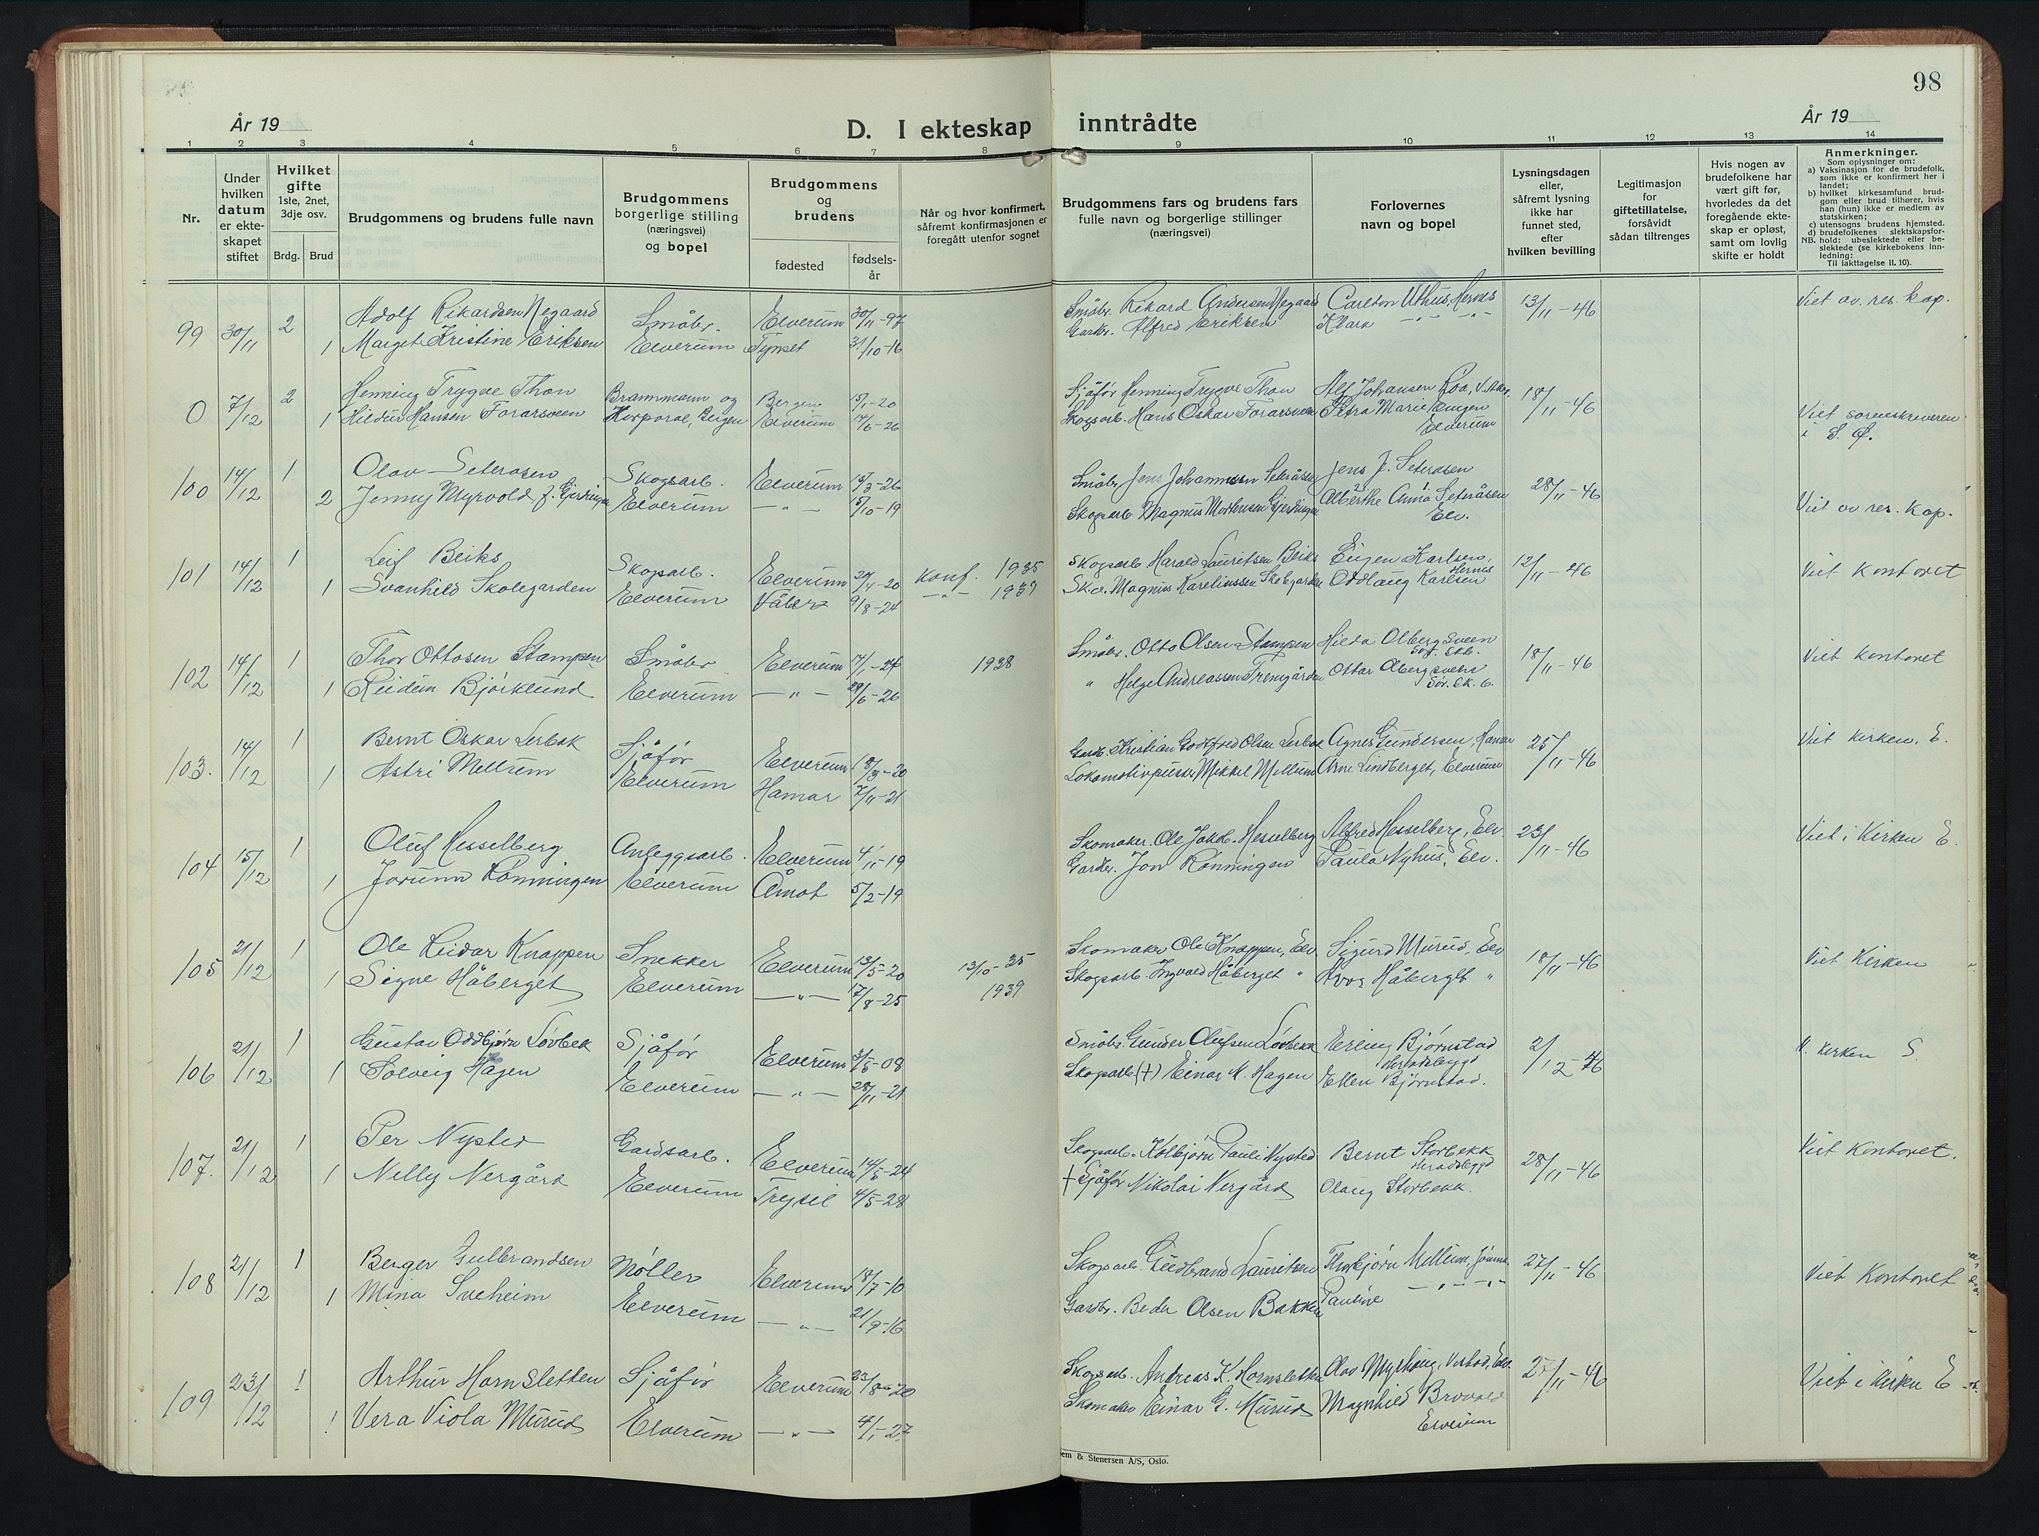 98
År 19
D. I ekteskap inntrådte
År 19
1 2 3 4 5 6 7 8 9 10 11 12 13 14
Nr.
Under hvilken datum er ekteskapet stiftet
Hvilket gifte 1ste, 2net, 3dje osv.
Brdg. Brud
Brudgommens og brudens fulle navn
Brudgommens borgerlige stilling (næringsvei) og bopel
Brudgommens og brudens
fødested
fødselsår
Når og hvor konfirmert, såfremt konfirmasjonen er foregått utenfor sognet
Brudgommens fars og brudens fars fulle navn og borgerlige stillinger (næringsvei)
Forlovernes navn og bopel
Lysningsdagen eller, såfremt lysning ikke har funnet sted, efter hvilken bevilling
Legitimasjon for giftetillatelse, forsåvidt sådan tiltrenges
Hvis nogen av brudefolkene har vært gift før, hvorledes da det foregående ekteskap er opløst, samt om lovlig skifte er holdt
Anmerkninger.
Som oplysninger om:
a) Vaksinasjon for de brudefolk, som ikke er konfirmert her i landet;
b) hvilket kirkesamfund brudgom eller brud tilhører, hvis han (hun) ikke er medlem av statskirken;
c) utensogns brudens hjemsted.
d) brudefolkenes slektskapsforhold: ubeslektede eller beslektede (se kirkebokens innledning:
NB.
Til iakttagelse II. 10).
99 30/11 2 Adolf Rikardsen Negaard Småbr. Elverum 30/11-97 Småbr. Rikard Andersen Negaard Carlton Uthus, Hernes 13/11-46 Viet av res. kap.
1 Marget Kristine Eriksen Elverum Tynset 31/10-16 Gardbr. Alfred Eriksen Klara -"- -"-
0 7/12 2 Henning Trygve Thon Brannmann og Bergen 5/1-20 Sjåfør Henning Trygve Thon Alf Johansen Roa, 18/11-46 Viet sorenskriveren
1 Hildur Hansen Forarsveen Korporal, Bergen Elverum 6-26 Skogsarb. Hans Oskar Forarsveen Petra Marie Engen Elverum i S. Ø.
100 14/12 1 Olav Seteråsen Skogsarb. Elverum 3-26 Småbr. Jens Johannessen Seteråsen Jens J. Seteråsen 28/11-46
2 Jenny Myrvold f. Gjerdingen Elverum -"- 5/10-19 Skogsarb. Magnus Mortensen Gjerdingen Alberthe Anna Seteråsen Elv. Viet av res. kap.
101 14/12 1 Leif Beiks Skogsarb. Elverum 29/4-20 Konf. 1935 Skogsarb Harald Lauritsen Beiks Eugen Karlsen, Hernes 12/11-46 Viet Kontoret
1 Svanhild Skolegarden Elverum Våler 9/8-24 -"- 1939 Sk.a. Magnus Karelinssen Skolegarden Oddlaug Karlsen
102 14/12 1 Thor Ottosen Stampen Småbr Elverum 17/1-24 1938 Småbr. Otto Olsen Stampen Hilda Olbergsveen 18/11-46 Viet Kontoret
1 Reidun Bjørklund Elverum -"- 29/6-26 " Helge Andreassen Fremgården Ottar Olbergsveen Sør. Sk. b.
103. 14/12 1 Bernt Oskar Lerbak Sjåfør Elverum 3-20 Gardb. Kristian Godtfred Olsen Lerbak Agnes Gundersen, Hamar 25/11-46 Viet Kirken. E.
1 Astri Mellum Elverum Hamar 7/11-21 Lokomotivpusser Mikkel Mellum Arne Lindberget, Elverum
104 15/12 1 Oluf Hesselberg Anleggsarb. Elverum 4/11-19 Skomaker. Ole Jakob. Hesselberg Alfred Hesselberg, Elv 23/11-46 Viet i Kirken E.
1 Jorunn Rønningen Elverum Åmot 5/2-19 Gardbr. Jon Rønningen Paula Nyhus, Elv.
105 21/12 1 Ole Reidar Knappen Snekker Elverum 13/5-20 13/10-35 Skomaker Ole Knappen, Elv Sigurd Murud, Elv 18/11-46 Viet Kirken "
1 Signe Håberget Elverum -"- 17/8-25 1939 Skogsarb. Ingvald Håberget " Håberget "
106 21/12 1 Gustav Oddbjørn Løvbek Sjåfør Elverum 5-08 Småbr. Gunder Olufsen Løvbekk Erling Bjørnstad Heradsbygd 2/12-46 V. Kirken S.
1 Solveig Hagen Elverum -"- 28/11-21 Skogsarb (+) Einar M. Hagen Ellen Bjørnstad.
107. 21/12 1 Per Nysted Gardsarb. Elverum 14/5-24 Skogsarb. Kolbjørn Pauli Nysted Bernt Storbekk Heradsbygd 28/11-46 Viet Kontoret.
1 Nelly Nergård Elverum Trysil 4/5-28 + Sjåfør Nikolai Nergård Olaug Storbekk.
108 21/12 1 Berger Gulbrandsen Møller Elverum 18/7-10 Skogsarb. Gudbrand Lauritsen Thorbjørn Mellum, Jømna 27/11-46 Viet Kontoret
1 Mina Sveheim Elverum -"- 21/9-16 Gardbr. Peder Olsen Bakken Pauline -"- -"-
109 23/12 1 Arthur Hornsletten Sjåfør Elverum 23/8-20 Skogsarb. Andreas K. Hornsletten Olav Myrhaug, Elv 27/11-46 Viet i Kirken E
1 Vera Viola Murud Elverum -"- 4/1-27 Skomaker Einar G. Murud Magnhild Brovold Elverum
em & Stenersen A/S, Oslo.